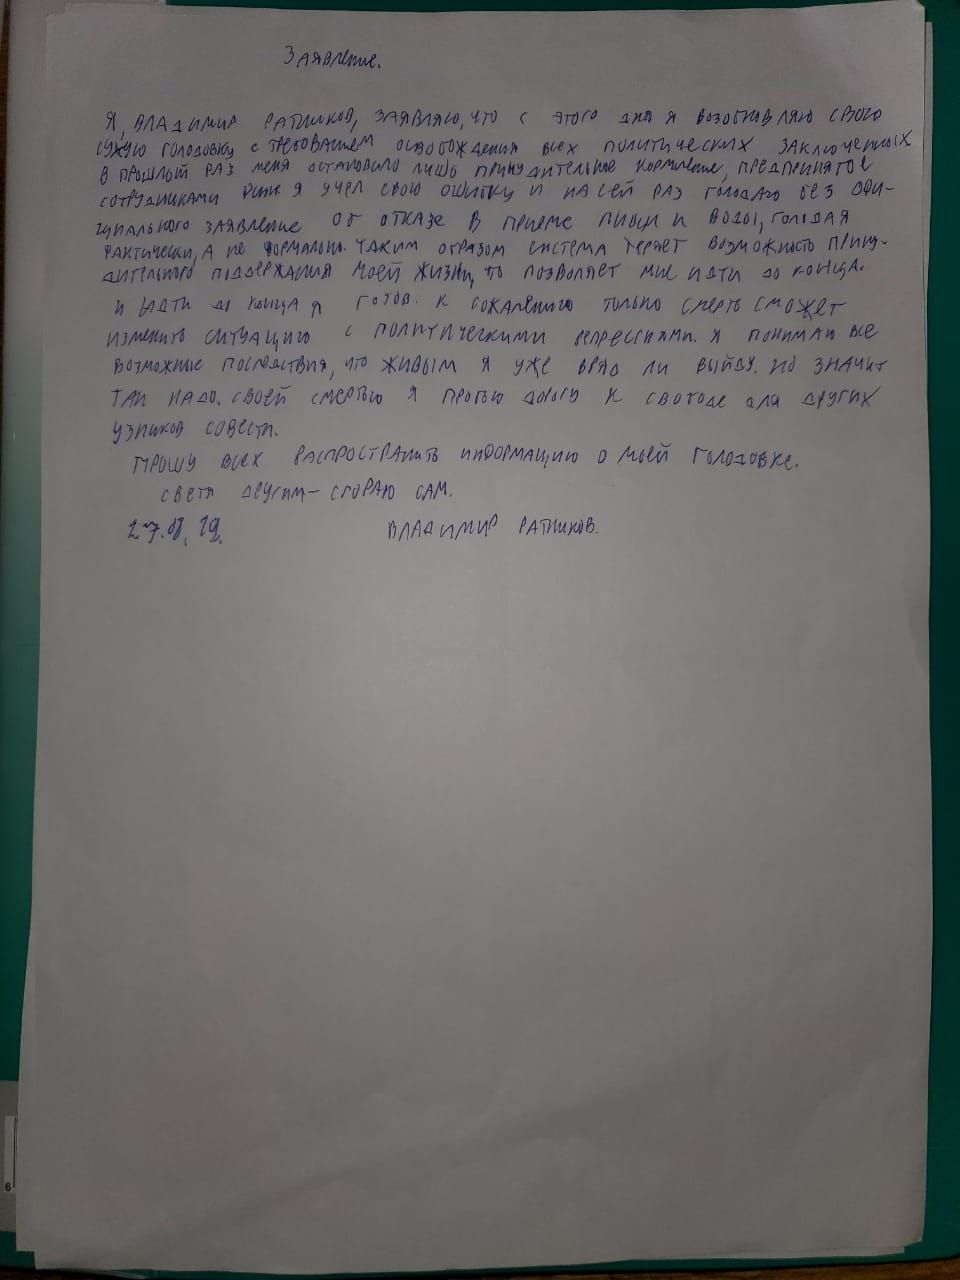 Заявление.
Я, Владимир Ратников, заявляю, что с этого дня я возобновляю свою
сухую голодовку с требованием освобождения всех политических заключенных
в прошлый раз меня остановило лишь принудительное кормление, предпринятое
сотрудниками я учел свою ошибку и на сей раз голодаю без офи-
циального заявление от отказе в приеме пищи и воды, голодая
фактически, а не формально. Таким образом система теряет возможность прину-
дительного поддержания моей жизни, что позволяет мне идти до конца.
и идти до конца я готов. К сожалению только смерть сможет
изменить ситуацию с политическими репрессиями. Я понимаю все
возможные последствия, что живым я уже вряд ли выйду. Но значит
так надо. своей смертью я пробью дорогу к свободе для других
узников совести.
Прошу всех распространить информацию о моей голодовке.
светя другим - сгораю сам.
27.08.19. Владимир Ратников.
6